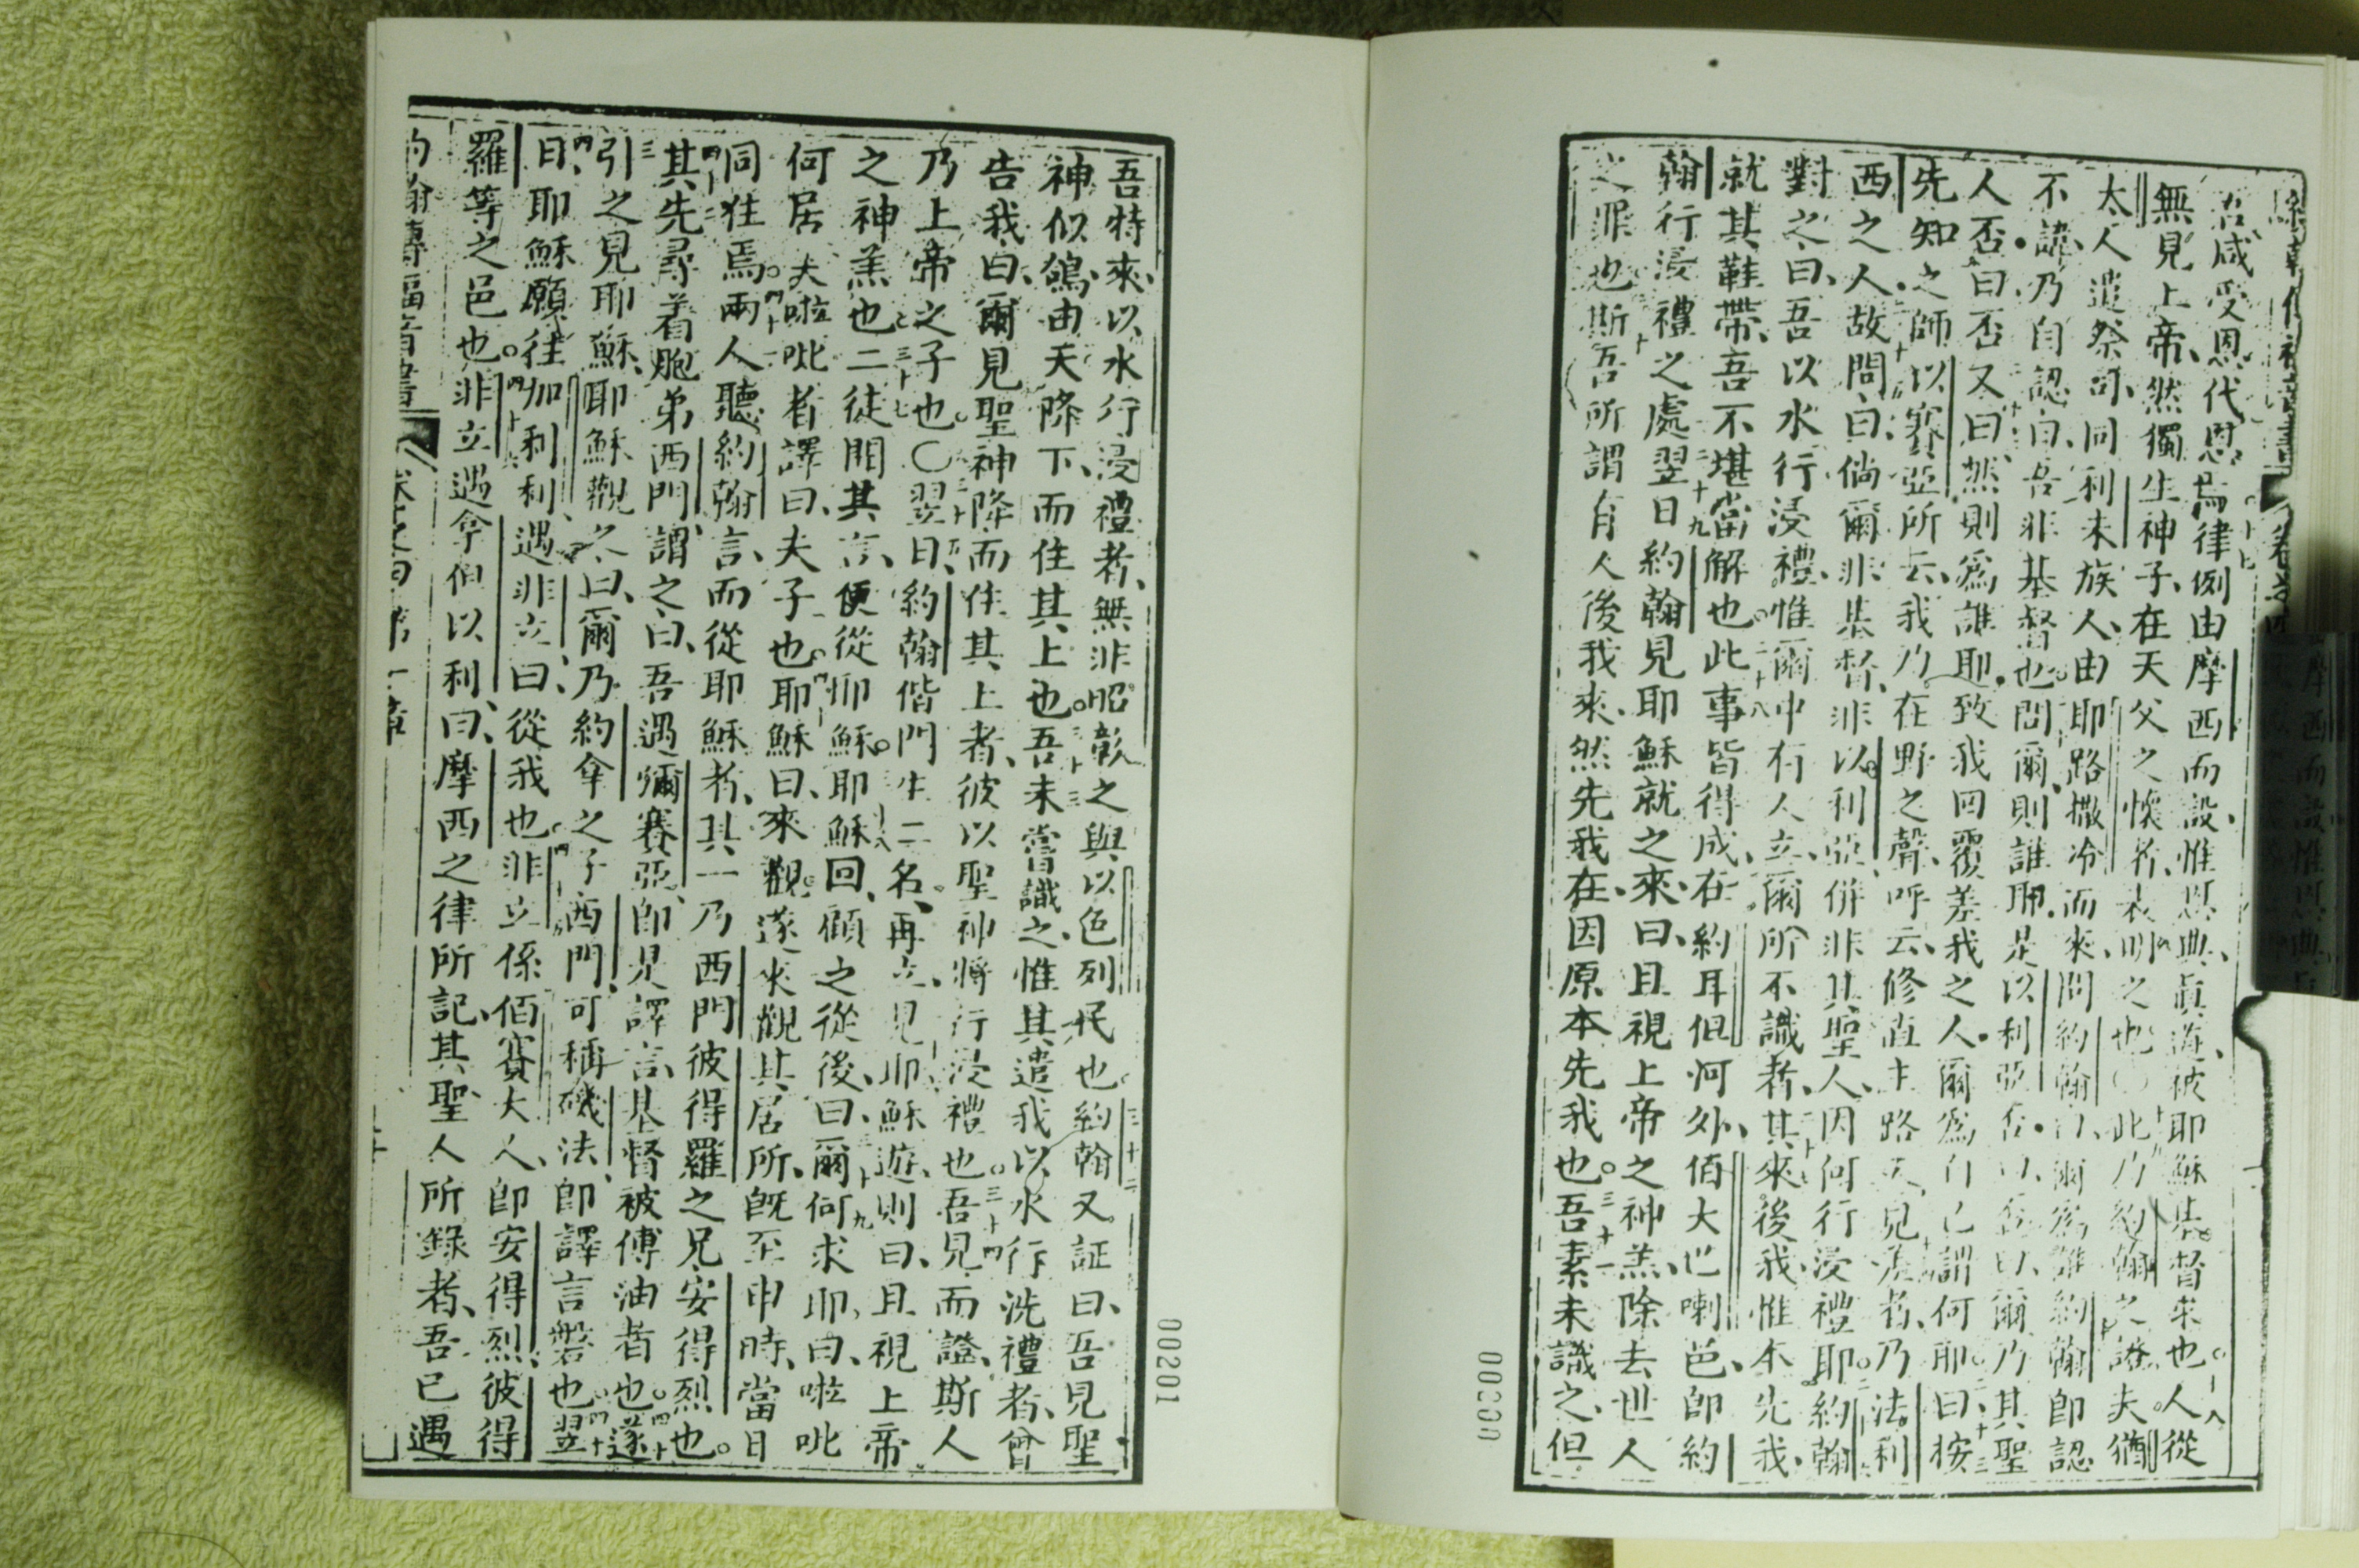 約翰傳福音書
吾咸受恩代恩焉十七律例由摩西而設惟恩典眞道被耶穌基督來也十八人從
無見上帝然獨生神子在天父之懷者表明之也〇此乃約翰之證夫猶
太人遣祭司同利未族人由耶路撒冷而來問約翰曰爾爲誰約翰即認
不諱乃自認曰吾非基督也問爾則誰耶是以利亞否曰否曰爾乃其聖
人否曰否又曰然則爲誰耶致我回覆差我之人爾爲自己謂何耶曰按
先知之師以賽亞所云我乃在野之聲呼云修直主路又見遣者乃法利
西之人故問曰倘爾非基督非以利亞併非其聖人因何行浸禮耶約翰
對之曰吾以水行浸禮惟爾中有人立爾所不識者其來後我惟本先我
就其鞋帶吾不堪當解也二十八此事皆得成在約耳但河外佰大巴喇邑即約
翰行浸禮之處二十九翌日約翰見耶穌就之來曰且視上帝之神羔除去世人
之罪也斯吾所謂有人後我來然先我在因原本先我也三十一吾素未識之但
00200
吾特來以水行浸禮者無非昭彰之與以色列民也三十二約翰又証曰吾見聖
神似鴿由天降下而住其上也三十三吾未嘗識之惟其遣我以水行洗禮者曾
告我曰爾見聖神降而住其上者彼以聖神將行浸禮也三十四吾見而證斯人
乃上帝之子也〇三十五翌日約翰偕門生二名再立見耶穌遊則曰且視上帝
之神羔也三十七二徒聞其言便從耶穌三十八耶穌回顧之從後曰爾何求耶曰啦吡
何居夫啦吡者譯曰夫子也耶穌曰來觀遂來觀其居所旣至申時當日
同住焉四十兩人聽約翰言而從耶穌者其一乃西門彼得羅之兄安得烈也
四十一其先尋着胞弟西門謂之曰吾遇彌賽亞即是譯言基督被傅油者也四十二遂
引之見耶穌耶穌觀之曰爾乃約拿之子西門可稱磯法即譯言磐也四十三翌
日耶穌願往加利利遇非立曰從我也四十四非立係佰賽大人即安得烈彼得
羅等之邑也四十五非立遇拿伯以利曰摩西之律所記其聖人所錄者吾已遇
約翰傳福音書 卷之四 第一章
00201